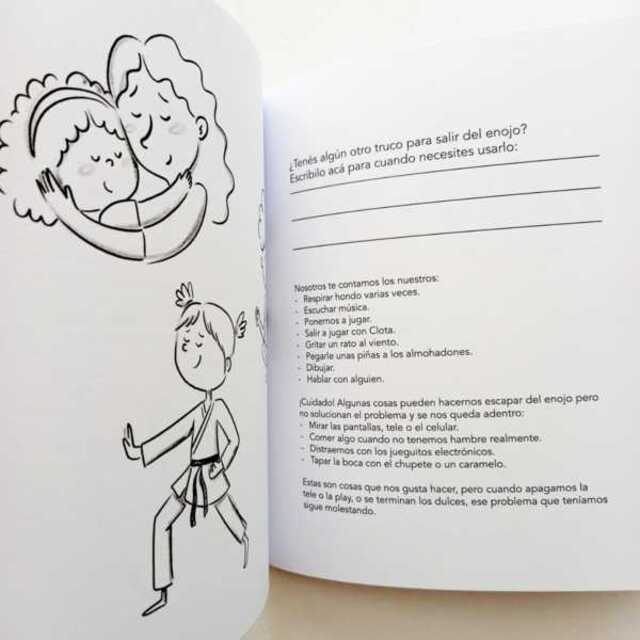 ¿Tenés algún otro truco para salir del enojo?
Escribilo acá para cuando necesites usarlo:
Nosotros te contamos los nuestros:
- Respirar hondo varias veces.
- Escuchar música.
- Ponernos a jugar.
- Salir a jugar con Clota.
- Gritar un rato al viento.
- Pegarle unas piñas a los almohadones.
- Dibujar.
- Hablar con alguien.
¡Cuidado! Algunas cosas pueden hacernos escapar del enojo pero
no solucionan el problema y se nos queda adentro:
- Mirar las pantallas, tele o el celular.
- Comer algo cuando no tenemos hambre realmente.
- Distraernos con los jueguitos electrónicos.
- Tapar la boca con el chupete o un caramelo.
Estas son cosas que nos gusta hacer, pero cuando apagamos la
tele o la play, o se terminan los dulces, ese problema que teníamos
sigue molestando.